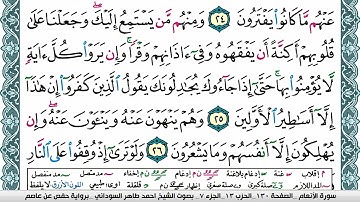 عَنْهُم مَّا كَانُوا۟ يَفْتَرُونَ ٢٤ وَمِنْهُم مَّن يَسْتَمِعُ إِلَيْكَ ۖ وَجَعَلْنَا عَلَىٰ
قُلُوبِهِمْ أَكِنَّةً أَن يَفْقَهُوهُ وَفِىٓ ءَاذَانِهِمْ وَقْرًا ۚ وَإِن يَرَوْا۟ كُلَّ ءَايَةٍ
لَّا يُؤْمِنُوا۟ بِهَا ۚ حَتَّىٰٓ إِذَا جَآءُوكَ يُجَـٰدِلُونَكَ يَقُولُ ٱلَّذِينَ كَفَرُوٓا۟ إِنْ هَـٰذَآ
إِلَّآ أَسَـٰطِيرُ ٱلْأَوَّلِينَ ٢٥ وَهُمْ يَنْهَوْنَ عَنْهُ وَيَنْـَٔوْنَ عَنْهُ ۖ وَإِن
يُهْلِكُونَ إِلَّآ أَنفُسَهُمْ وَمَا يَشْعُرُونَ ٢٦ وَلَوْ تَرَىٰٓ إِذْ وُقِفُوا۟ عَلَى ٱلنَّارِ
سورة الأنعام - الصفحة ١٣٠ - الحزب ١٣ - الجزء ٧ - بصوت الشيخ أحمد طاهر السوداني - برواية حفص عن عاصم